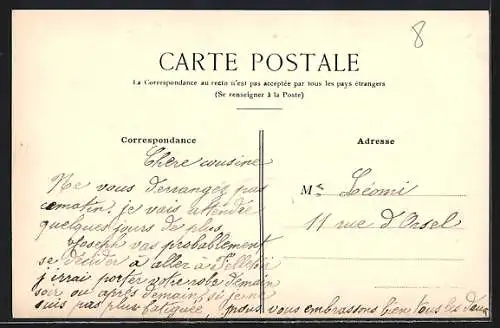 8
CARTE POSTALE
La Correspondance au recto n'est pas acceptée par tous les pays étrangers
(Se renseigner à la Poste)
Correspondance
Adresse
Chère cousine
Ne vous derrangez pas
cematin, je vais attendre
quelques jours de plus
Joseph vas probablement
se decider a aller à
j'irrai porter votre robe demain
soir ou après demain, si je ne
suis pas plus fatiguée, nous vous embrassons bien tous les deux
Mme Léomi
11 rue d'Orsel